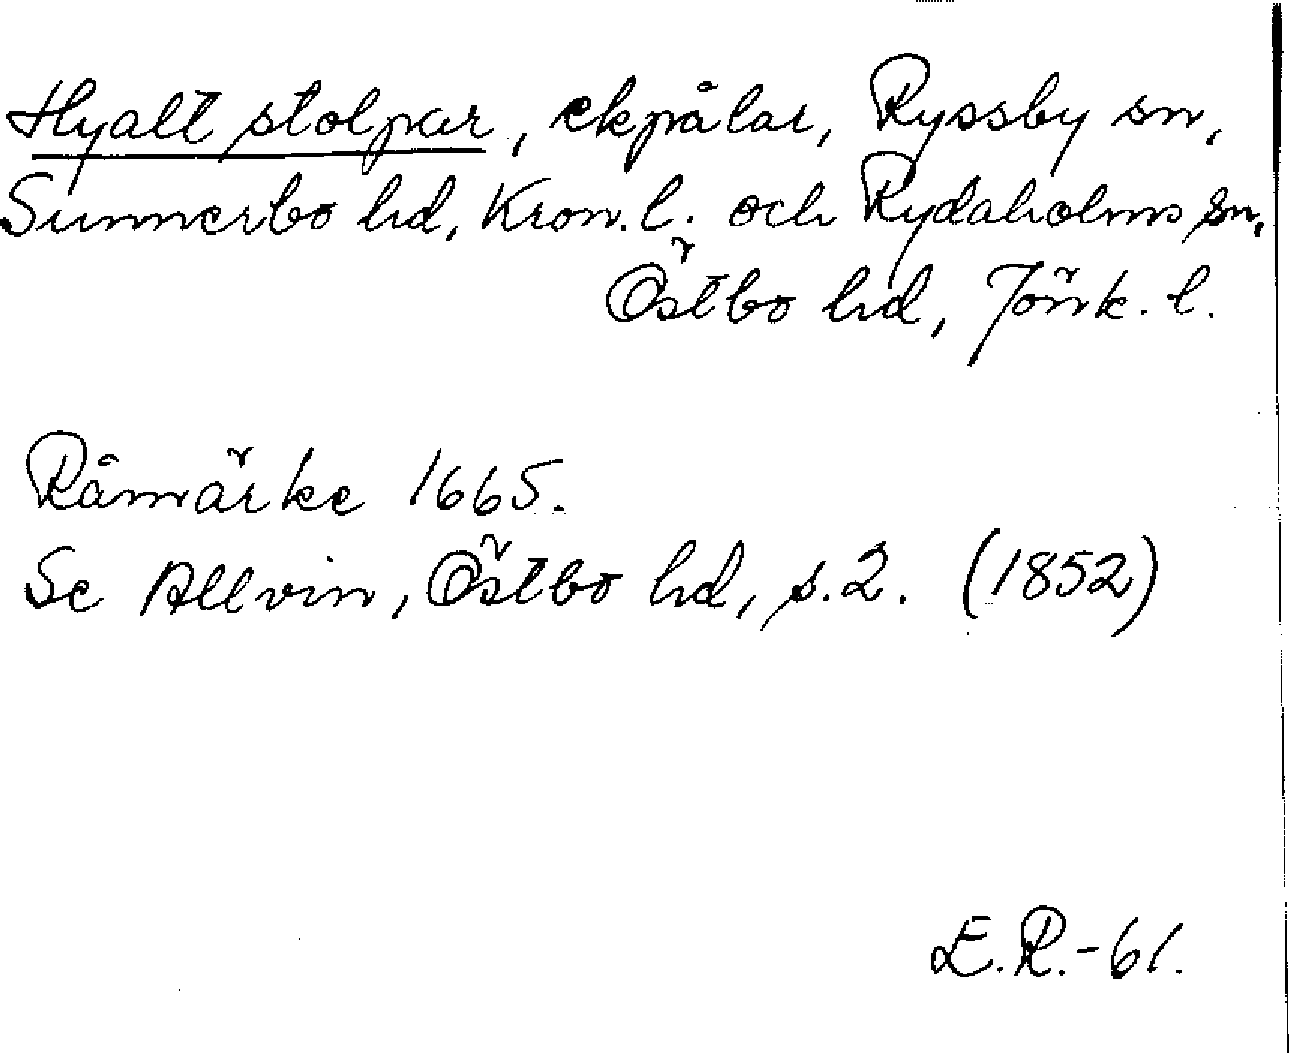 Hyalt stolpar, ekpålar, Ryssby sn,
Sunnerbo hd, Kron. l. och Rydaholms sn,
Östbo hd, Jönk. l.
Råmärke 1665.
Se Allvin, Östbo hd, s. 2. (1852)
E.R.-61.